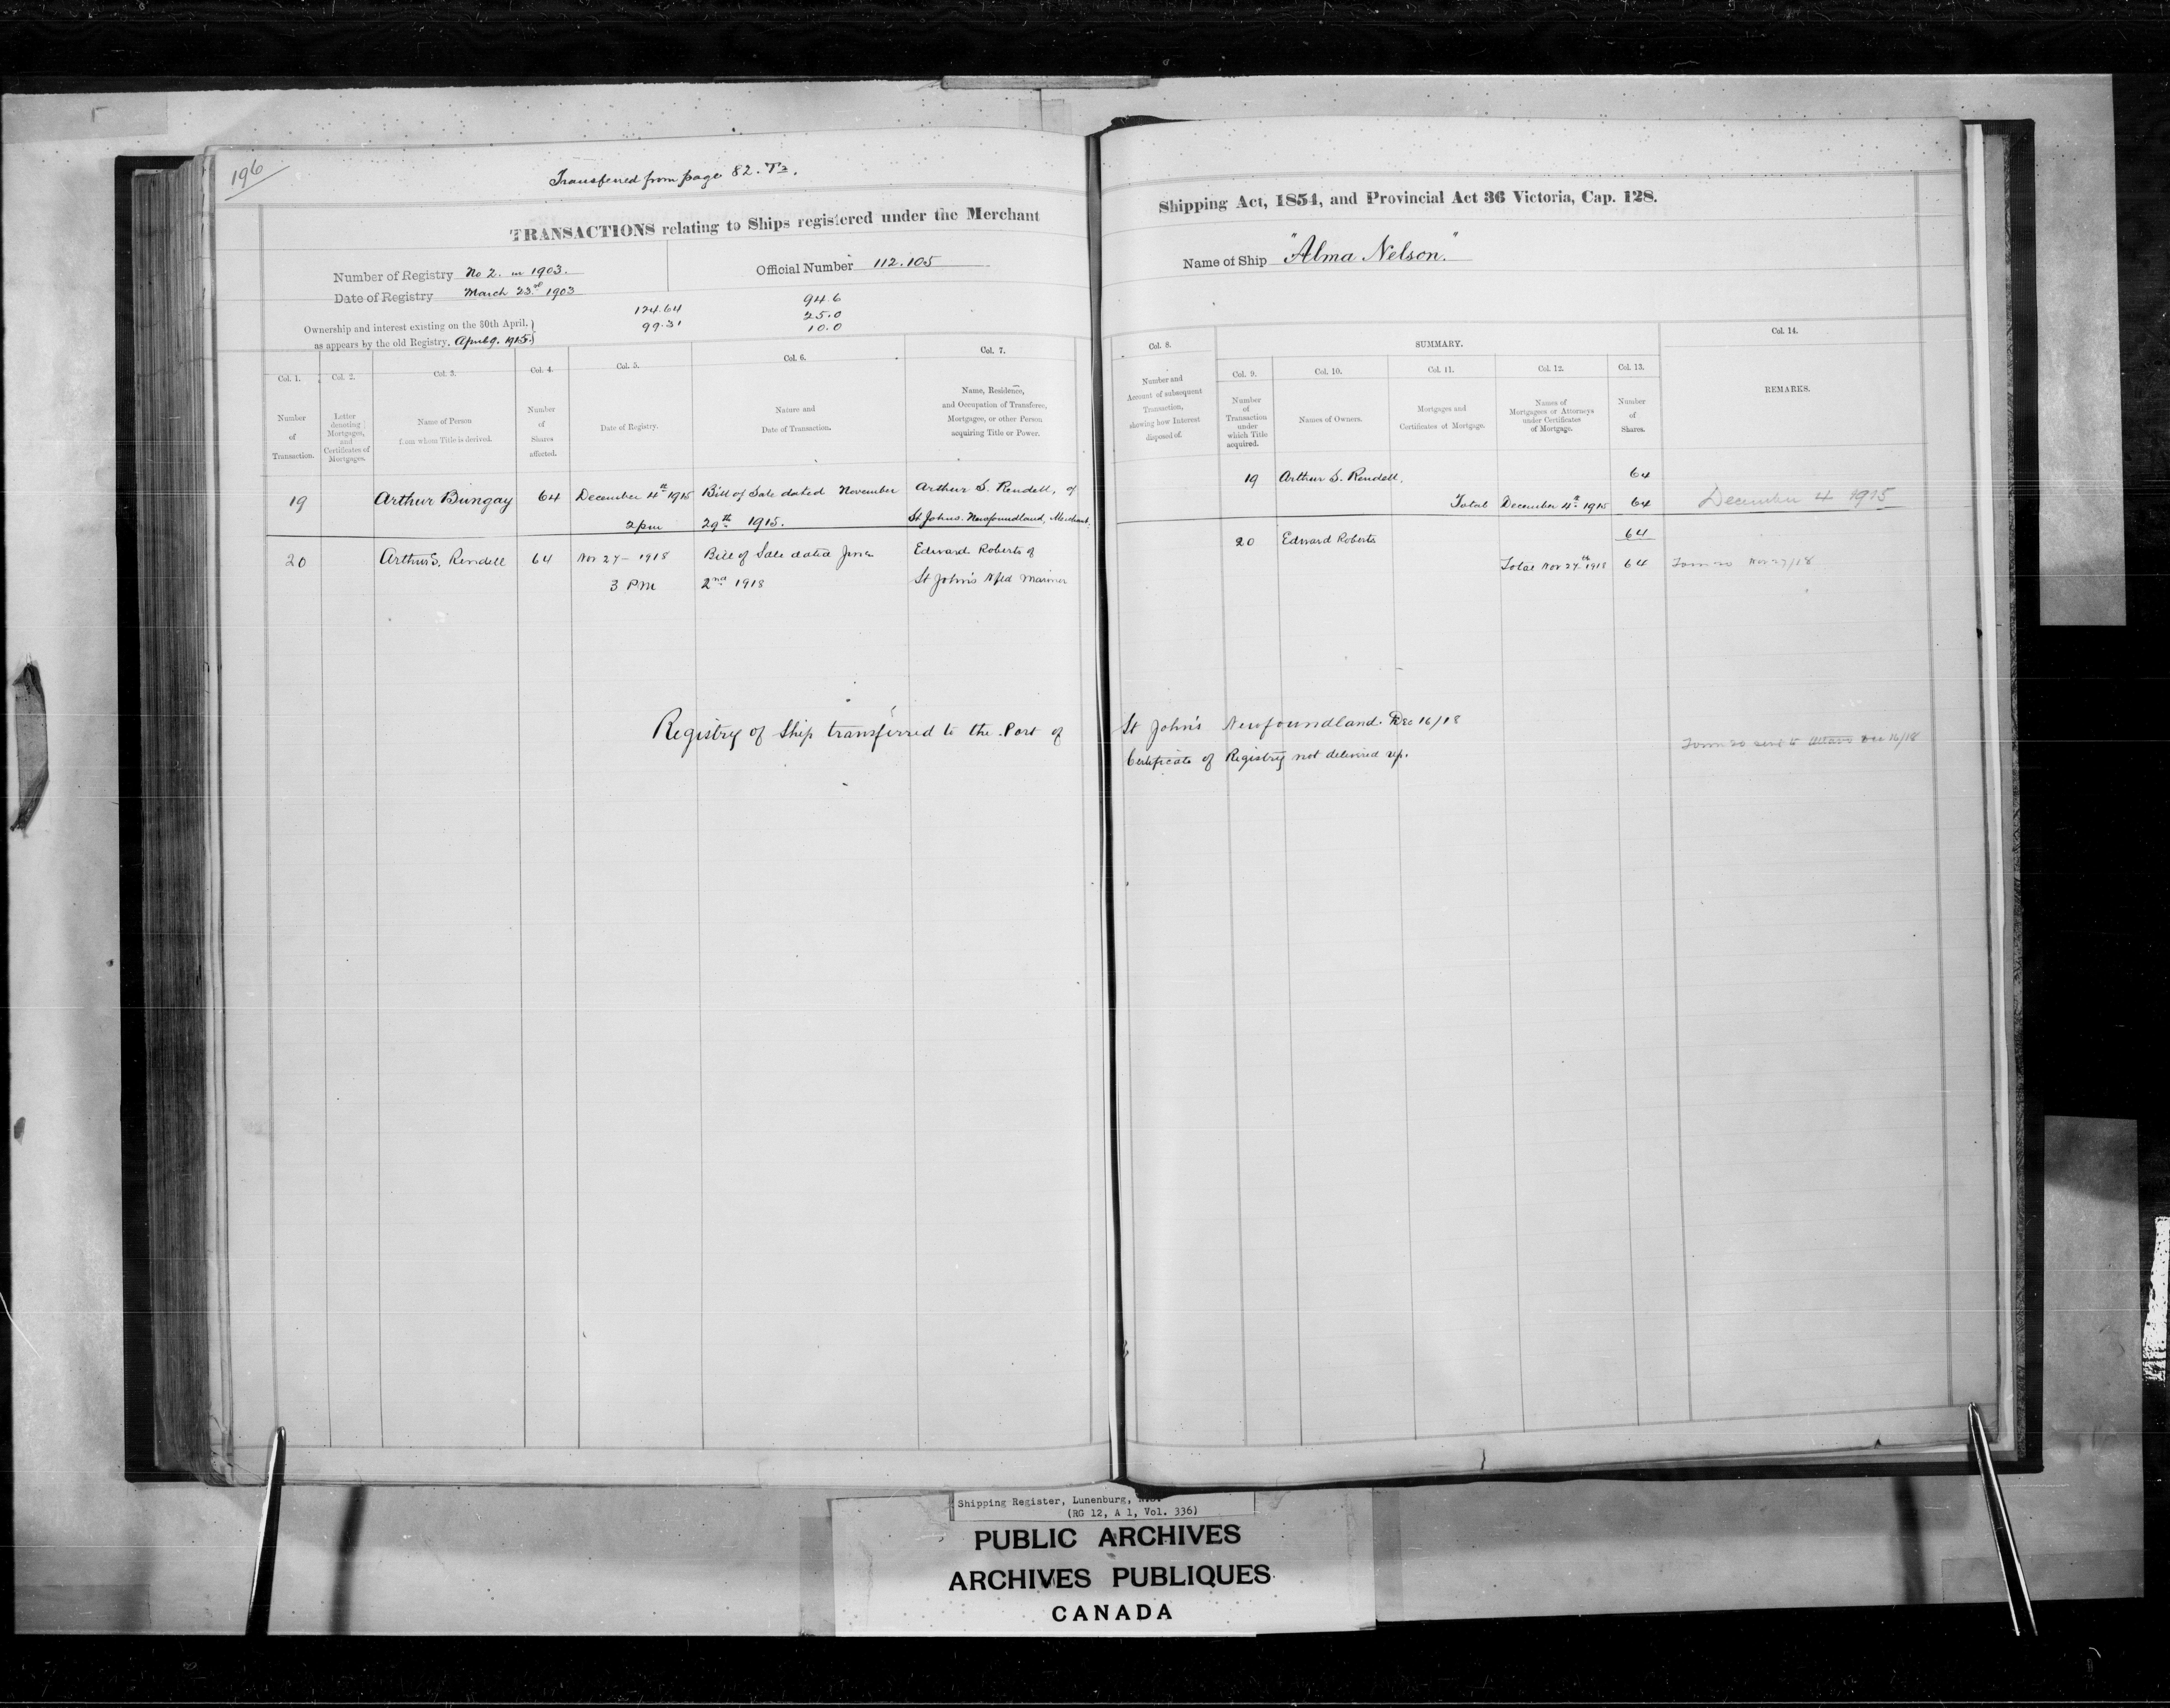 196
Transferred from page 82. T3.
TRANSACTIONS relating to Ships registered under the Merchant Shipping Act, 1854, and Provincial Act 36 Victoria, Cap. 128.
Number of Registry No 2. in 1903.
Official Number 112.105
Name of Ship "Alma Nelson."
Date of Registry March 23rd 1903
124.64
99.31
94.6
25.0
10.0
Ownership and interest existing on the 30th April,
as appears by the old Registry, April 9. 1915.
Col. 1.
Number
of
Transaction.
Col. 2.
Letter
denoting
Mortgages,
and
Certificates of
Mortgages.
Col. 3.
Name of Person
from whom Title is derived.
Col. 4.
Number
of
Shares
affected.
Col. 5.
Date of Registry.
Col. 6.
Nature and
Date of Transaction.
Col. 7.
Name, Residence,
and Occupation of Transferee,
Mortgagee, or other Person
acquiring Title or Power.
Col. 8.
Number and
Account of subsequent
Transaction,
shewing how Interest
disposed of.
SUMMARY.
Col. 9.
Number
of
Transaction
under
which Title
acquired.
Col. 10.
Names of Owners.
Col. 11.
Mortgages and
Certificates of Mortgage.
Col. 12.
Names of
Mortgagees or Attorneys
under Certificates
of Mortgage.
Col. 13.
Number
of
Shares.
Col. 14.
REMARKS.
19 Arthur Bungay 64 December 4th 1915 Bill of Sale dated November Arthur S. Rendell, of
2 pm 29th 1915. St Johns. Newfoundland, Merchant.
19 Arthur S. Rendell. 64
Total December 4th 1915 64 December 4 1915
20 Arthur S. Rendell 64 Nov 27 - 1918 Bill of Sale dated June Edward Roberts of
3 PM 2nd 1918 St John's Nfld Mariner
20 Edward Roberts 64
Total Nov 27th 1918 64 Form 20 Nov 27/18
Registry of Ship transferred to the Port of St John's Newfoundland. Dec 16/18
Certificate of Registry not delivered up.
Form 20 sent to Ottawa Dec 16/18
Shipping Register, Lunenburg, N.S.
(RG 12, A 1, Vol. 336)
PUBLIC ARCHIVES
ARCHIVES PUBLIQUES
CANADA